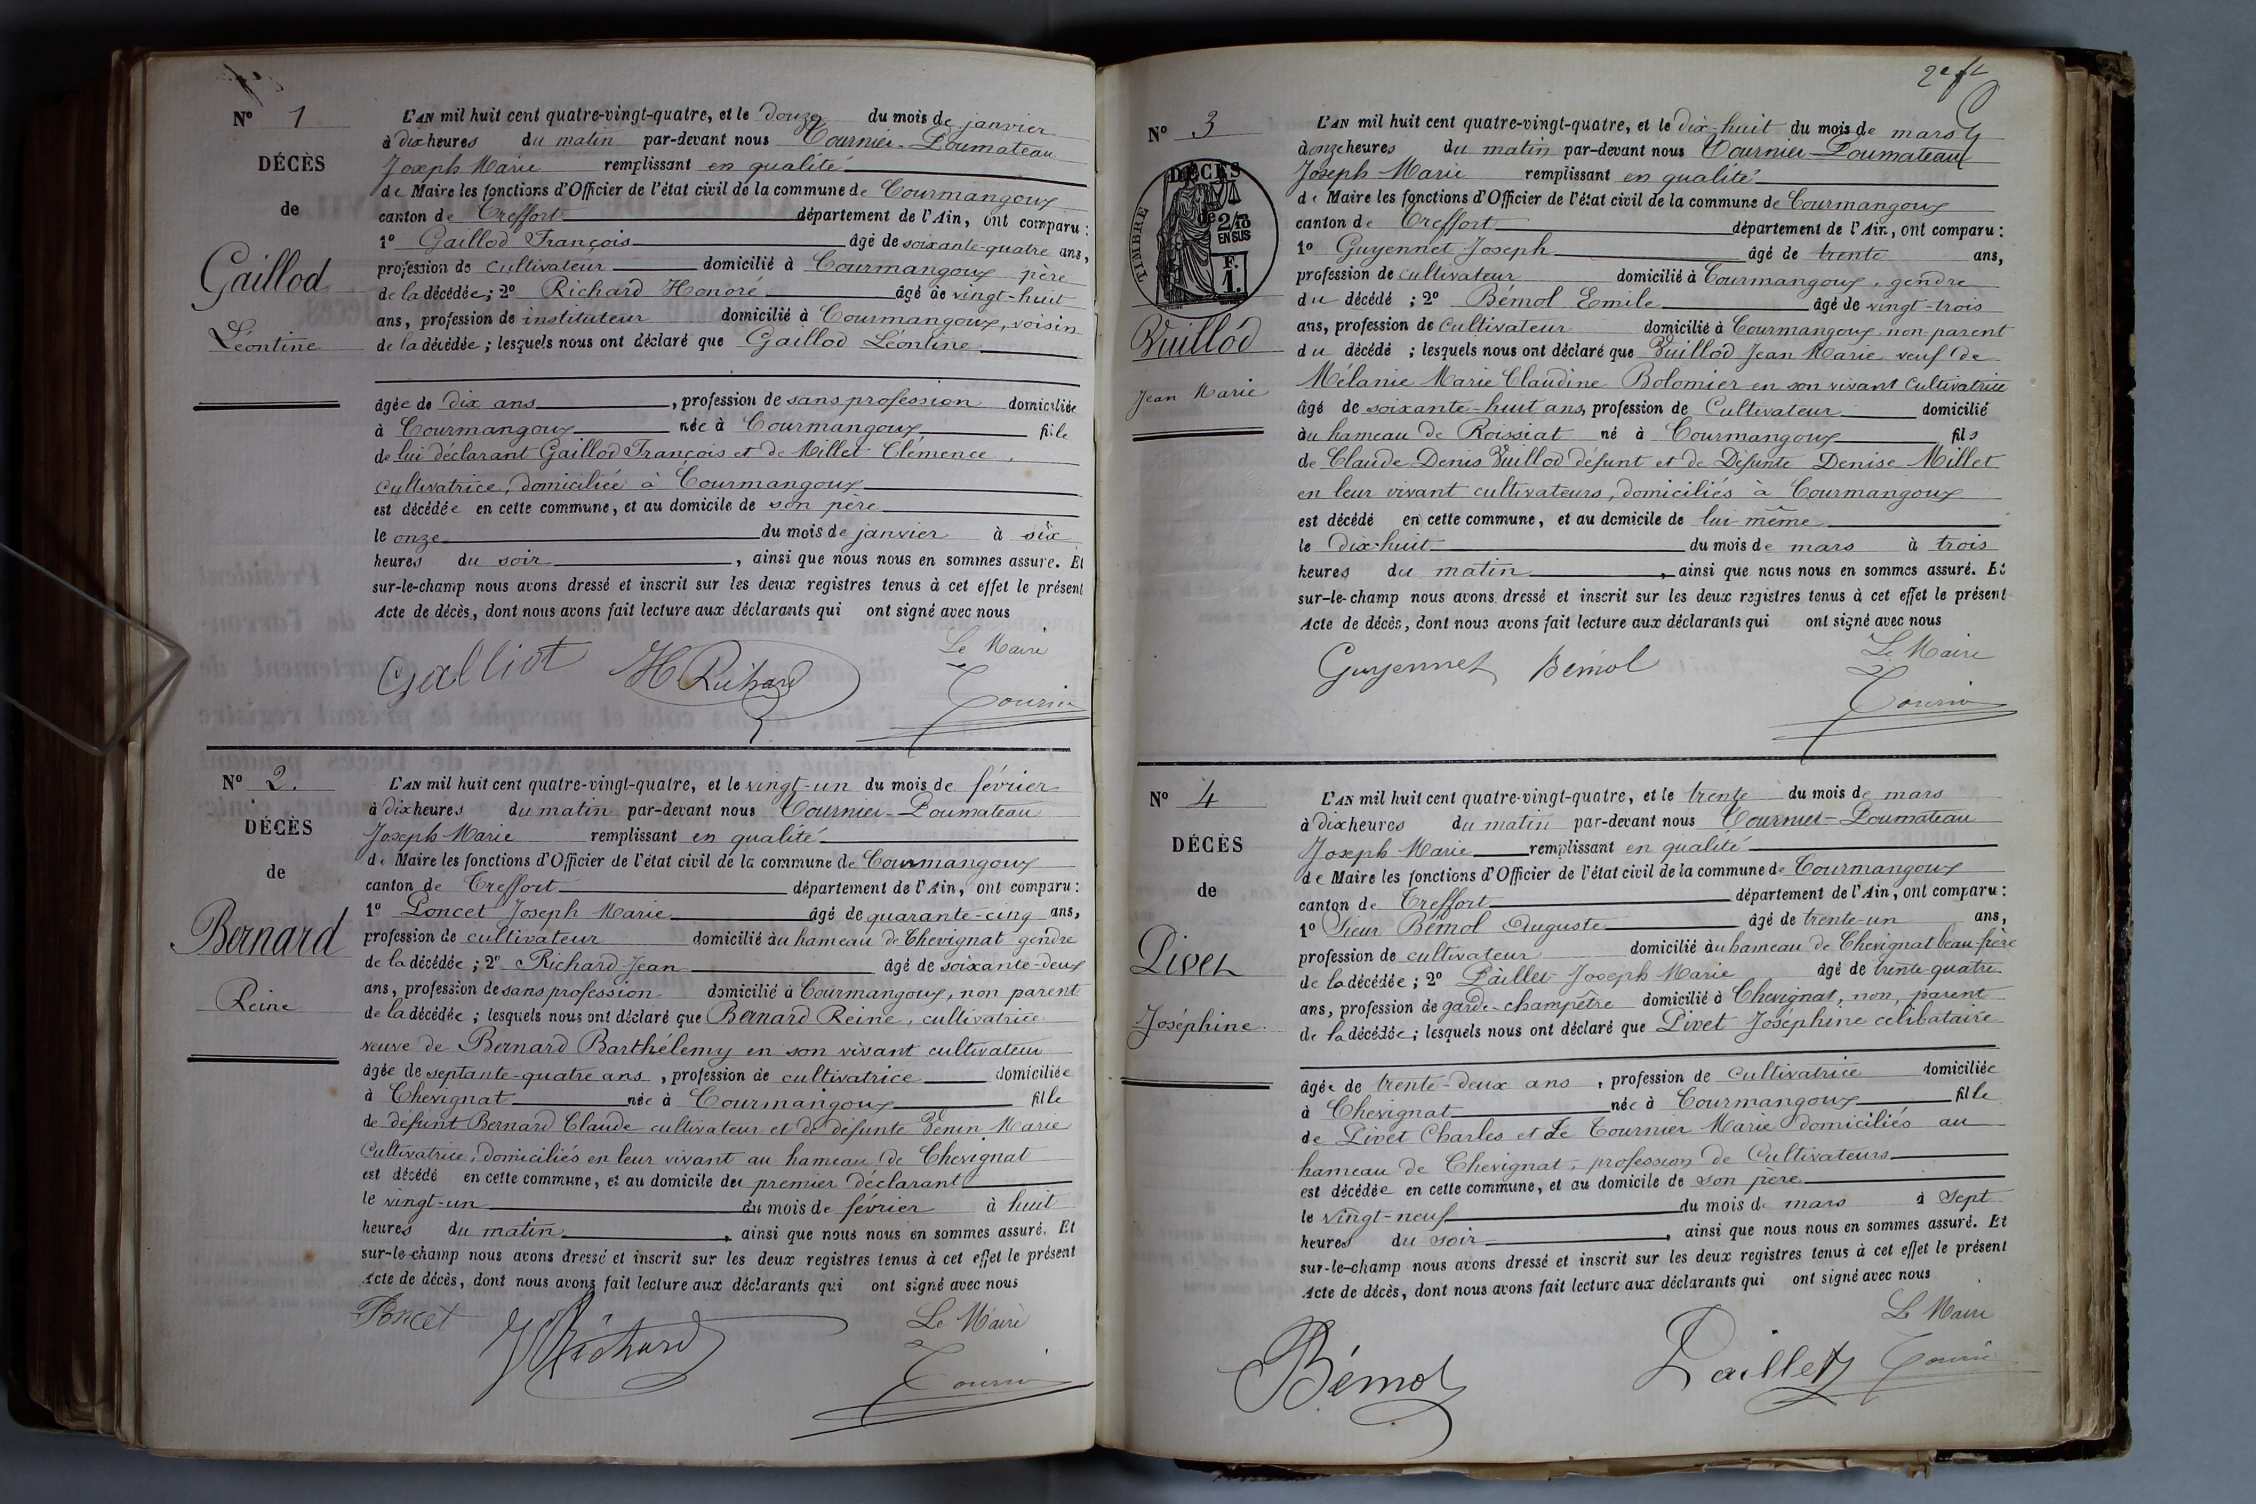 N° 1
DÉCÈS
de
Gaillod
Léontine
L'AN mil huit cent quatre-vingt-quatre, et le douze du mois de janvier
à dix heures du matin par-devant nous Tournier-Poumateau
Joseph Marie remplissant en qualité
de Maire les fonctions d'Officier de l'état civil de la commune de Courmangoux
canton de Treffort département de l'Ain, ont comparu :
1° Gaillod François âgé de soixante-quatre ans,
profession de cultivateur domicilié à Courmangoux père
de la décédée ; 2° Richard Honoré âgé de vingt-huit
ans, profession de instituteur domicilié à Courmangoux, voisin
de la décédée ; lesquels nous ont déclaré que Gaillod Léontine
âgée de dix ans, profession de sans profession domiciliée
à Courmangoux née à Courmangoux fille
de lui déclarant Gaillod François et de Millet Clémence,
cultivatrice, domiciliée à Courmangoux
est décédée en cette commune, et au domicile de son père
le onze du mois de janvier à six
heures du soir, ainsi que nous nous en sommes assuré. Et
sur-le-champ nous avons dressé et inscrit sur les deux registres tenus à cet effet le présent
Acte de décès, dont nous avons fait lecture aux déclarants qui ont signé avec nous
Le Maire
Galliot H Richard Tournier
N° 2.
DÉCÈS
de
Bernard
Reine
L'AN mil huit cent quatre-vingt-quatre, et le vingt-un du mois de février
à dix heures du matin par-devant nous Tournier-Poumateau
Joseph Marie remplissant en qualité
de Maire les fonctions d'Officier de l'état civil de la commune de Courmangoux
canton de Treffort département de l'Ain, ont comparu :
1° Poncet Joseph Marie âgé de quarante-cinq ans,
profession de cultivateur domicilié au hameau de Chevignat gendre
de la décédée ; 2° Richard Jean âgé de soixante-deux
ans, profession de sans profession domicilié à Courmangoux, non parent
de la décédée ; lesquels nous ont déclaré que Bernard Reine, cultivatrice
veuve de Bernard Barthélemy en son vivant cultivateur
âgée de septante-quatre ans, profession de cultivatrice domiciliée
à Chevignat née à Courmangoux fille
de défunt Bernard Claude cultivateur et de défunte Marie
Cultivatrice, domiciliés en leur vivant au hameau de Chevignat
est décédé en cette commune, et au domicile du premier déclarant
le vingt-un du mois de février à huit
heures du matin, ainsi que nous nous en sommes assuré. Et
sur-le-champ nous avons dressé et inscrit sur les deux registres tenus à cet effet le présent
Acte de décès, dont nous avons fait lecture aux déclarants qui ont signé avec nous
Le Maire
Poncet Richard Tournier
2e ft
N° 3
DÉCÈS
de
TIMBRE
2/10
EN SUS
F.
1.
Vuillod
Jean Marie
L'AN mil huit cent quatre-vingt-quatre, et le dix-huit du mois de mars
à onze heures du matin par-devant nous Tournier-Poumateau
Joseph Marie remplissant en qualité
de Maire les fonctions d'Officier de l'état civil de la commune de Courmangoux
canton de Treffort département de l'Ain, ont comparu :
1° Guyennet Joseph âgé de trente ans,
profession de cultivateur domicilié à Courmangoux, gendre
du décédé ; 2° Bémol Emile âgé de vingt-trois
ans, profession de cultivateur domicilié à Courmangoux non parent
du décédé ; lesquels nous ont déclaré que Vuillod Jean Marie veuf de
Mélanie Marie Claudine Bolomier en son vivant cultivatrice
âgé de soixante-huit ans, profession de Cultivateur domicilié
au hameau de Roissiat né à Courmangoux fils
de Claude Denis Vuillod défunt et de Défunte Denise Millet
en leur vivant cultivateurs, domiciliés à Courmangoux
est décédé en cette commune, et au domicile de lui même
le dix-huit du mois de mars à trois
heures du matin, ainsi que nous nous en sommes assuré. Et
sur-le-champ nous avons dressé et inscrit sur les deux registres tenus à cet effet le présent
Acte de décès, dont nous avons fait lecture aux déclarants qui ont signé avec nous
Le Maire
Guyennet Bémol Tournier
N° 4
DÉCÈS
de
Pivet
Joséphine.
L'AN mil huit cent quatre-vingt-quatre, et le trente du mois de mars
à dix heures du matin par-devant nous Tournier-Poumateau
Joseph Marie remplissant en qualité
de Maire les fonctions d'Officier de l'état civil de la commune de Courmangoux
canton de Treffort département de l'Ain, ont comparu :
1° Sieur Bémol Auguste âgé de trente-un ans,
profession de cultivateur domicilié au hameau de Chevignat beau-frère
de la décédée ; 2° Paillet Joseph Marie âgé de trente-quatre
ans, profession de garde-champêtre domicilié à Chevignat, non, parent
de la décédée ; lesquels nous ont déclaré que Pivet Joséphine célibataire
âgée de trente-deux ans, profession de Cultivatrice domiciliée
à Chevignat née à Courmangoux fille
de Pivet Charles et de Tournier Marie domiciliés au
hameau de Chevignat, profession de Cultivateurs
est décédée en cette commune, et au domicile de son père
le vingt-neuf du mois de mars à sept
heures du soir, ainsi que nous nous en sommes assuré. Et
sur-le-champ nous avons dressé et inscrit sur les deux registres tenus à cet effet le présent
Acte de décès, dont nous avons fait lecture aux déclarants qui ont signé avec nous
Le Maire
Bémol Paillet Tournier